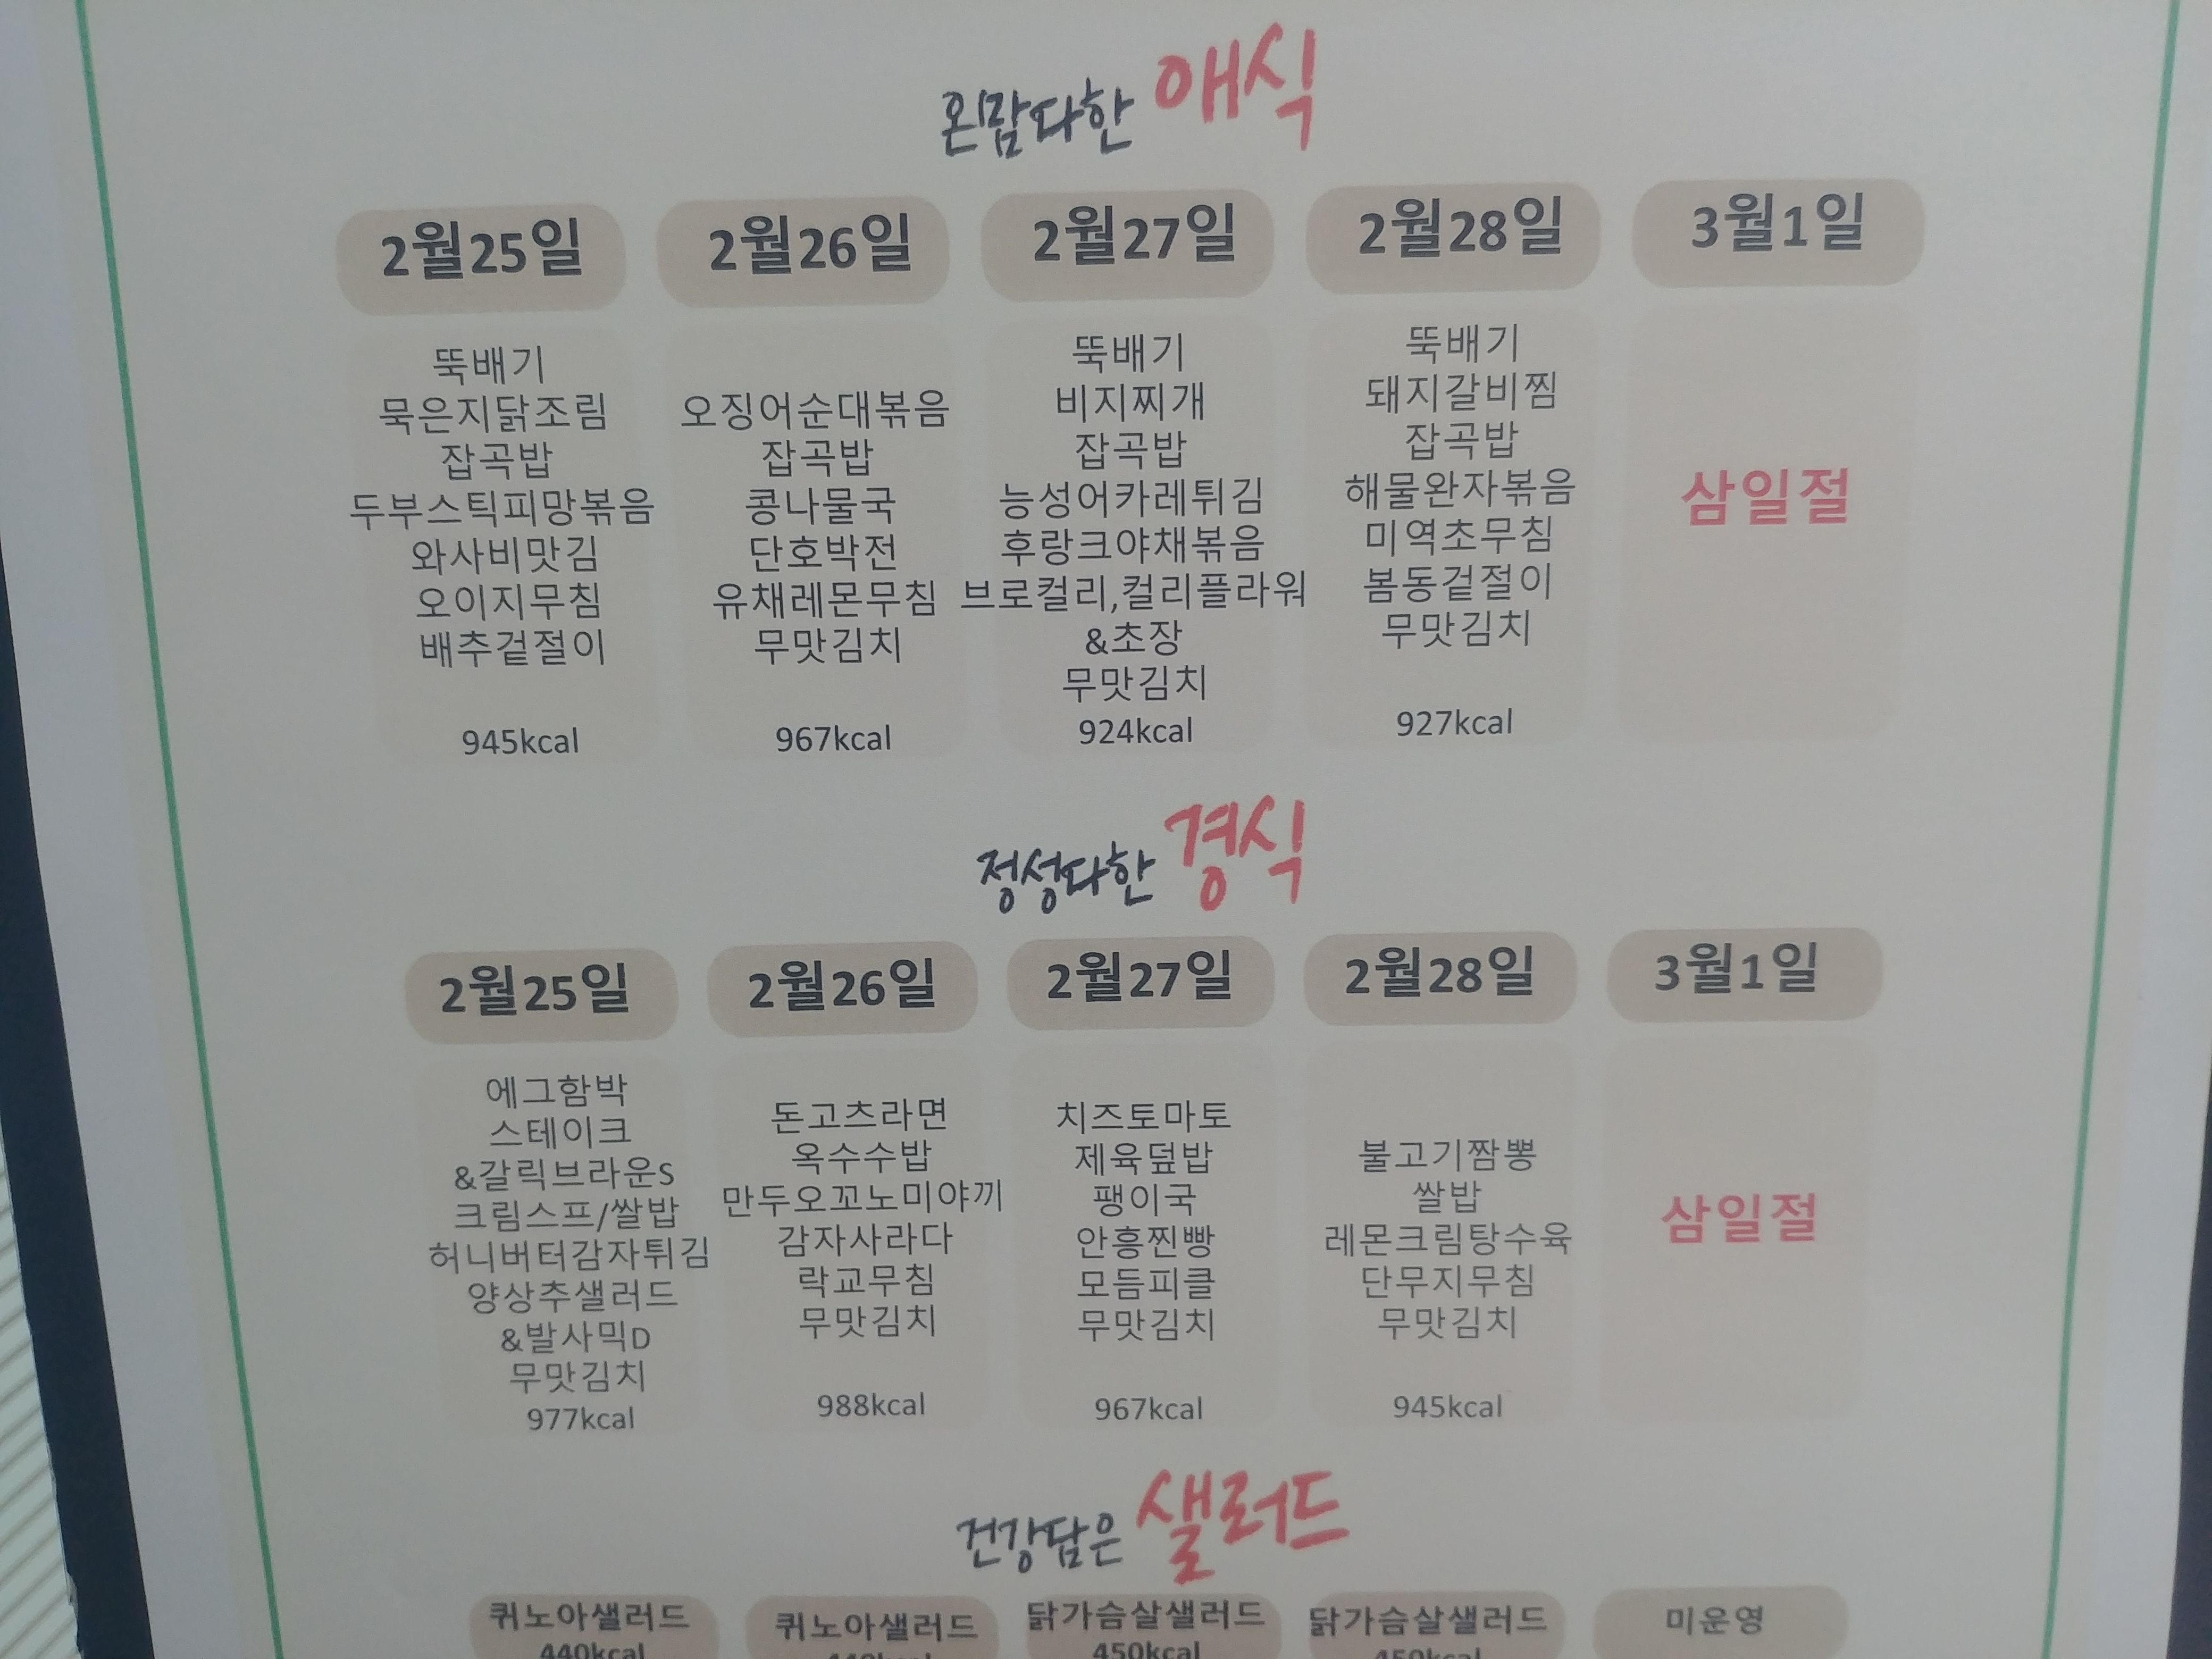 온맘다한 애식
2월25일
뚝배기
묵은지닭조림
잡곡밥
두부스틱피망볶음
와사비맛김
오이지무침
배추겉절이
945kcal
2월26일
오징어순대볶음
잡곡밥
콩나물국
단호박전
유채레몬무침
무맛김치
967kcal
2월27일
뚝배기
비지찌개
잡곡밥
능성어카레튀김
후랑크야채볶음
브로컬리,컬리플라워
&초장
무맛김치
924kcal
2월28일
뚝배기
돼지갈비찜
잡곡밥
해물완자볶음
미역초무침
봄동겉절이
무맛김치
927kcal
3월1일
삼일절
정성다한 경식
2월25일
에그함박
스테이크
&갈릭브라운S
크림스프/쌀밥
허니버터감자튀김
양상추샐러드
&발사믹D
무맛김치
977kcal
2월26일
돈고츠라면
옥수수밥
만두오꼬노미야끼
감자사라다
락교무침
무맛김치
988kcal
2월27일
치즈토마토
제육덮밥
팽이국
안흥찐빵
모듬피클
무맛김치
967kcal
2월28일
불고기짬뽕
쌀밥
레몬크림탕수육
단무지무침
무맛김치
945kcal
3월1일
삼일절
건강담은 샐러드
퀴노아샐러드
440kcal
퀴노아샐러드
440kcal
닭가슴살샐러드
450kcal
닭가슴살샐러드
450kcal
미운영